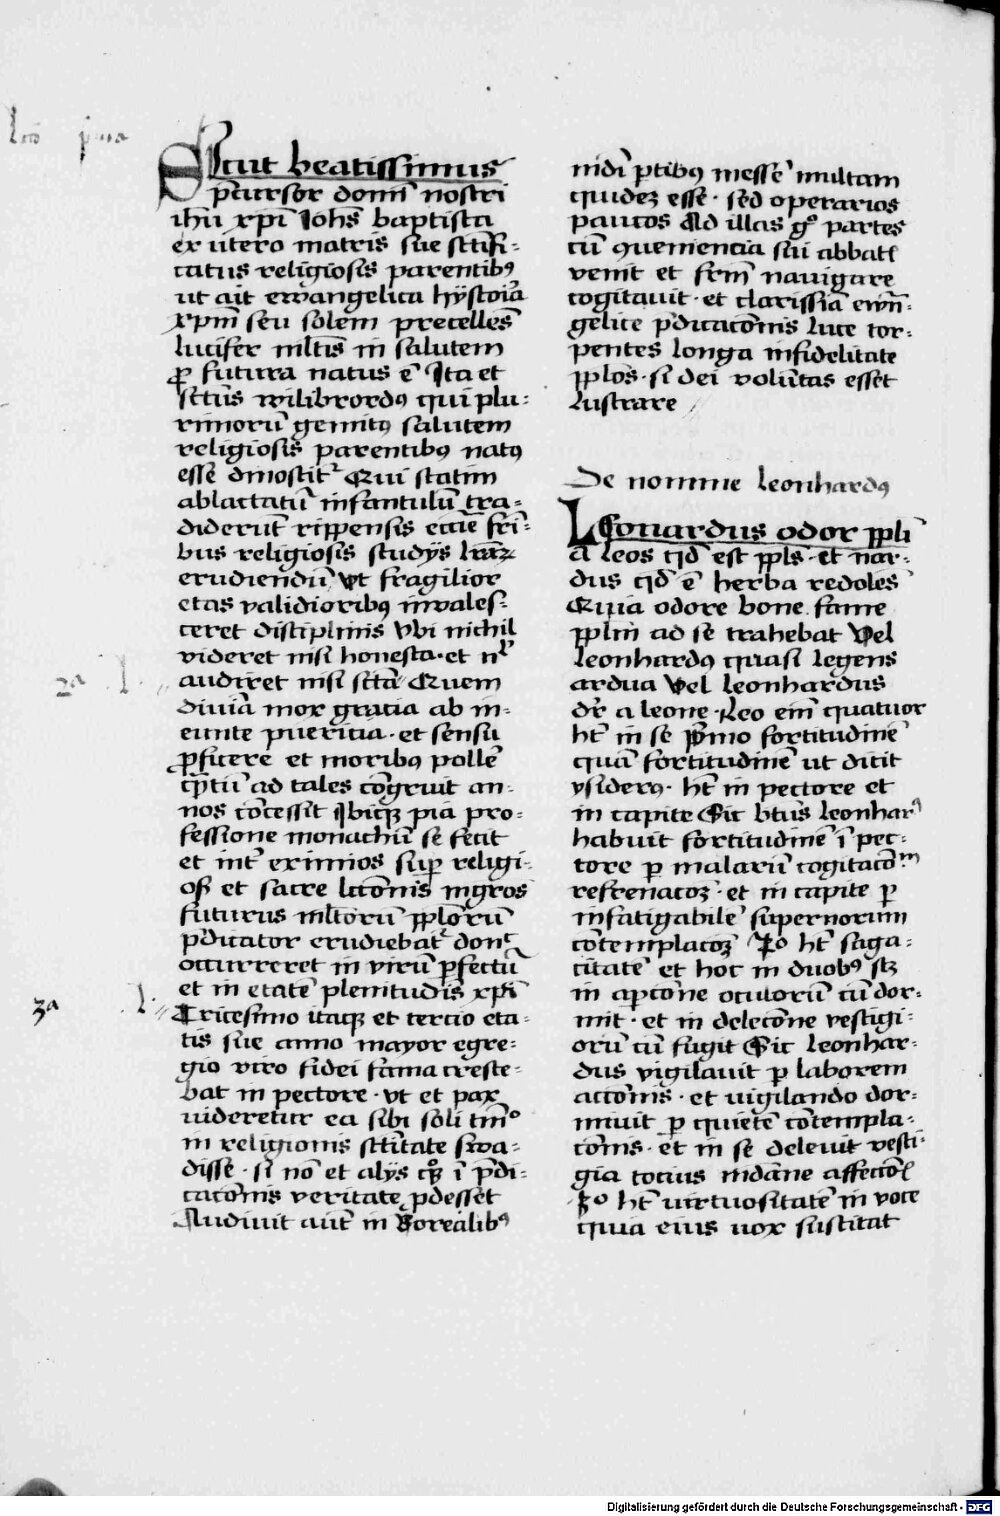 Sicut beatissimus
p̄cursor domī nostri
ihū xpī Iohēs baptista
ex utero matris sue sctīfi-
catus religiosis parentibꝰ
ut ait ewangelica hÿstoīa
xpm̄ seu solem precellēs
lucifer ml̄tis in salutem
ꝓ futura natus ē Ita et
sctūs wilibrordꝰ qui plu-
rimorū gemitꝰ salutem
religiosis parentibꝰ natꝰ
esse dinoscitᷣ Qui statim
ablactatū infantulū tra-
diderūt rippensis eccīe frī-
bus religiosis studÿs lrāꝝ
erudiendū Vt fragilior
etas validioribꝰ inuales-
ceret disciplinis Vbi nichil
videret nisi honesta · et nͥl
audiret nisi sctā Quem
diuīa mox gracia ab in-
eunte puericia · et sensu
ꝓficere et moribꝰ pollē
qp̄tū ad tales cōgruit an-
nos cōcessit Ibiqꝫ pia pro-
fessione monachū se fecit
et intᷣ eximios suꝑ religi-
oꝭ et sacre lctōnis mgros̄
futurus ml̄torū pplōrū
p̄dicator erudiebatᷣ donc̄
occurreret in virū ꝑfectū
et in etatē plenitudīs xpī
Tricesimo itaqꝫ et tercio eta-
tis sue anno mayor egre-
gio viro fidei fama cresce-
bat in pectore · vt et pax
uideretur ea sibi soli tm̄o
in religionis sctītate swa-
disse · si nō et alÿs qꝫ ī p̄di-
catōnis veritate ꝓdesset
Audiuit aūt in Borealibꝰ
mdī ꝑtibꝰ messē multam
quidez esse · sed operarios
paucos Ad illas gͦ partes
cū queniencia sui abbatꝭ
venit et frm̄ nauigare
cogitauit · et clarissīa ewn̄-
gelice p̄dicatōnis luce tor-
pentes longa infidelitate
pplōs · si dei volūtas esset
lustrare
De nomine leonhardꝰ
Leonardus odor ppli
a leos qd̄ est ppls̄ · et nar-
dus qd̄ ē herba redolēs
Quia odore bone fame
pplm̄ ad se trahebat Vel
leonhardꝰ quasi legens
ardua Vel leonhardus
dr̄ a leone · Leo em̄ quatuor
ht̄ in se Pͥmo fortitudinē
quā fortitudinē ut dicit
ysiderꝰ · ht̄ in pectore et
in capite Sic btūs leonharꝰ
habuit fortitudinē ī pec-
tore ꝑ malarū cogitacōm
refrenacōꝫ · et in capite ꝑ
infatigabilē supernorum
cōtemplacōꝫ 2o ht̄ saga-
citatē et hoc in duobꝰ sꝫ
in aꝑcōne oculorū cū dor-
mit · et in delecōne vestigi-
orū cū fugit Sic leonhar-
dus vigilauit ꝑ laborem
accōnis · et uigilando dor-
miuit ꝑ quietē cōtempla-
cōnis · et in se deleuit vesti-
gia tocius mdāne affeccōꝭ
3o ht̄ uirtuositatē in voce
quia eius uox suscitat
2a l
3a l